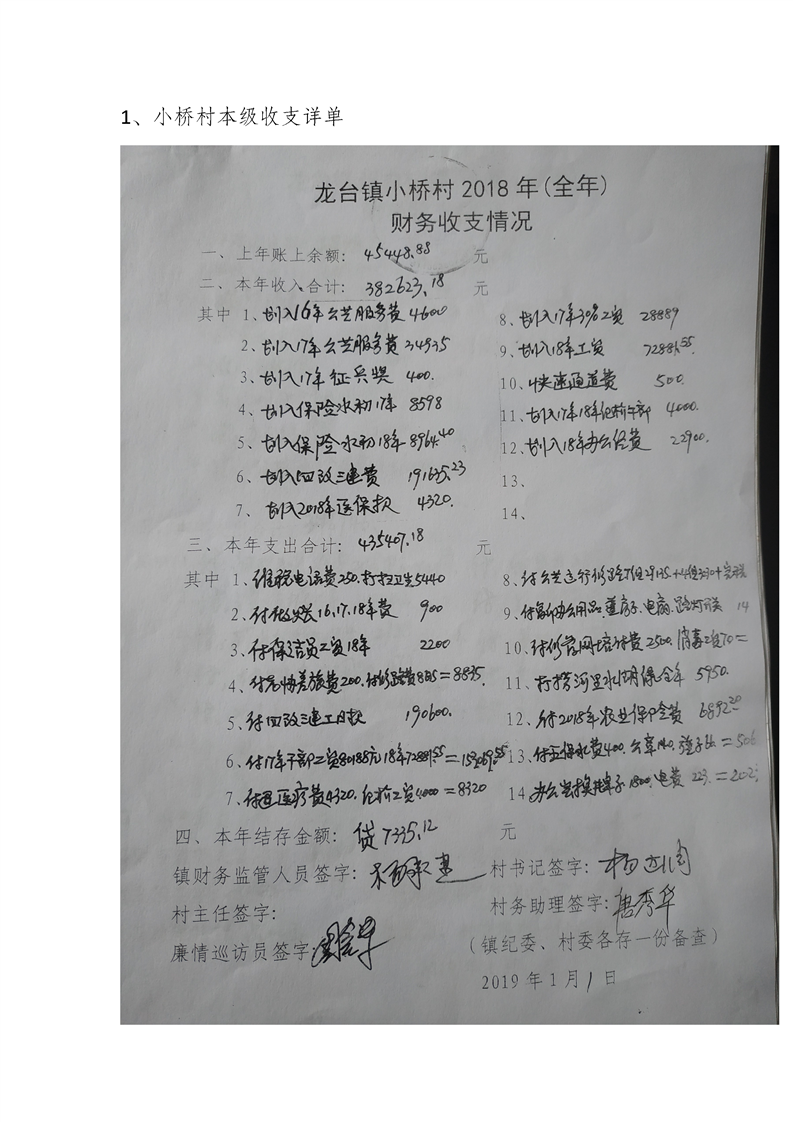 1、小桥村本级收支详单
龙台镇小桥村2018年(全年)
财务收支情况
一、上年账上余额: 45448.88 元
二、本年收入合计: 382623.18 元
其中 1、划入16年公共服务费 4600
2、划入17年公共服务费 34935
3、划入17年征兵奖 400.
4、划入保险水初17年 8598
5、划入保险水初18年 8964.40
6、划入四改三建费 191635.23
7、划入2018年医保款 4320.
8、划入17年30%工资 28889
9、划入18年工资 72881.55
10、快速通道费 500.
11、划入17年18年纪检干部 4000.
12、划入18年办公经费 22900.
13、
14、
三、本年支出合计: 435407.18 元
其中 1、维稳电话费250.打扫卫生5440
2、付做账16.17.18年费 900
3、付保洁员工资18年 2200
4、付差旅费200.付修路费8635=8835.
5、付四改三建工程款 190600.
6、付17年干部工资80188元18年72881.55=153069.55
7、付医疗费4320.纪检工资4000=8320
8、付公共运行修路
9、付办公用品.电商.路灯开关 14
10、付官网培训费2500.消毒工资70=
11、打捞河里水 保全年 5950.
12、付2018年农业保险费 6892.20
13、付五保水费400.公章140. =506
14、办公室换牌子1800.电费 223.=202
四、本年结存金额: 贷7335.12 元
镇财务监管人员签字:
村书记签字:
村主任签字:
村务助理签字:唐秀华
廉情巡访员签字:
(镇纪委、村委各存一份备查)
2019年1月1日